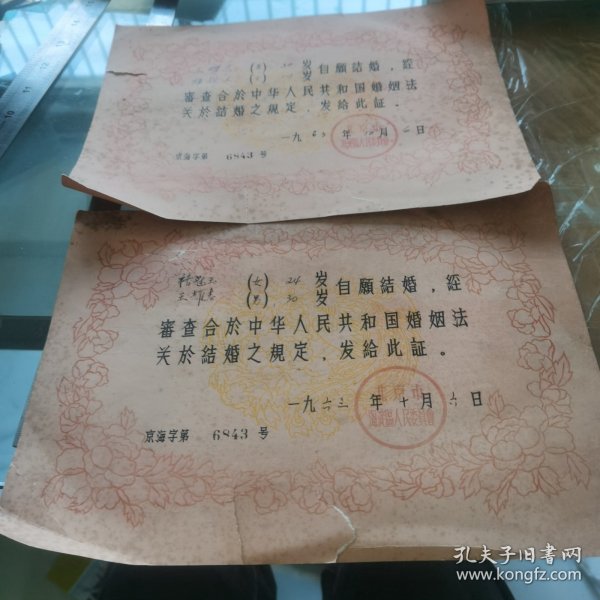 岁自願結婚，經
岁
審查合於中华人民共和国婚姻法
关於結婚之規定，发給此証。
一九六三年 月 日
京海字第 6843 号
(女) 24 岁自願結婚，經
(男) 30 岁
審查合於中华人民共和国婚姻法
关於結婚之規定，发給此証。
一九六三 年 十 月 六 日
北京市
京海字第 6843 号
孔夫子旧书网
www.kongfz.com